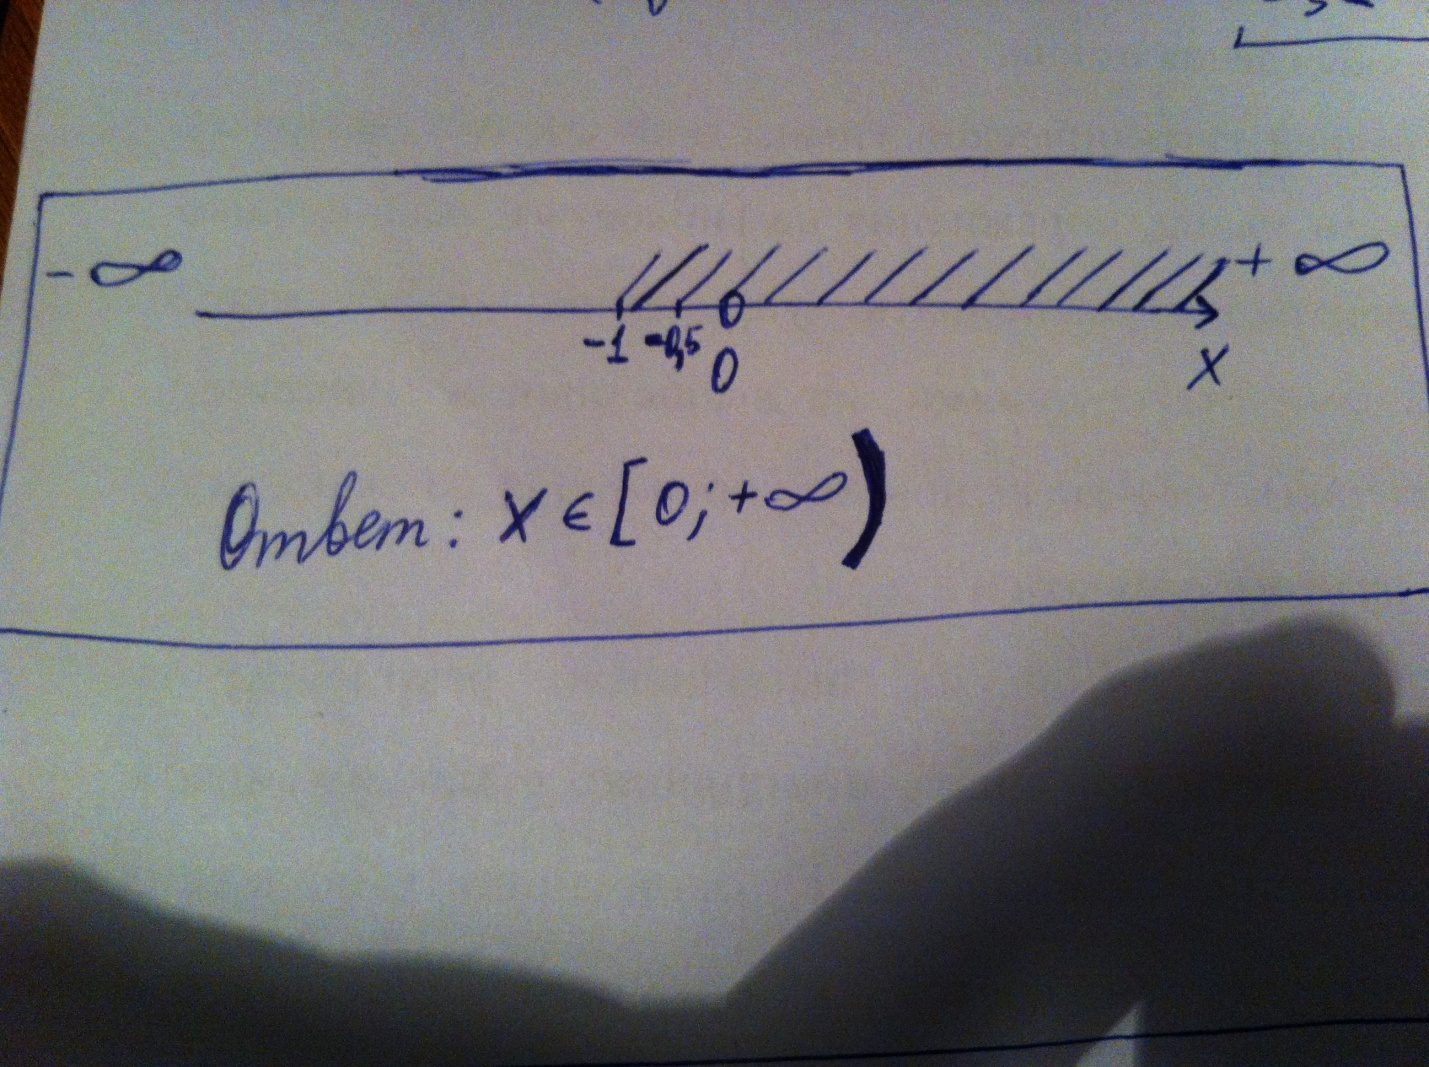 - ∞ + ∞
-1 -0,5 0 x
Ответ: x ∈ [0; +∞)